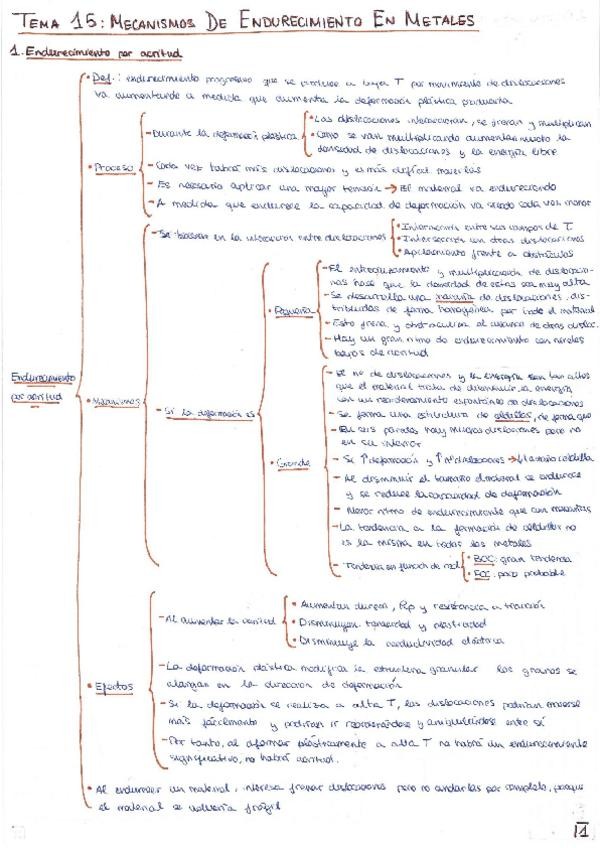 TEMA 15: MECANISMOS DE ENDURECIMIENTO EN METALES
1. Endurecimiento por acritud
Endurecimiento
por acritud
• Def.: endurecimiento progresivo que se produce a baja T por movimiento de dislocaciones
va aumentando a medida que aumenta la deformación plástica
• Proceso
- Durante la deformación plástica
• Las dislocaciones interaccionan, se frenan y multiplican
• Como se van multiplicando aumentan mucho la
densidad de dislocaciones y la energía libre
- Cada vez habrá más dislocaciones y es más difícil moverlas
- Es necesario aplicar una mayor tensión → El material va endureciendo
- A medida que endurece la capacidad de deformación va siendo cada vez menor
• Mecanismos
- Se basan en la interacción entre dislocaciones
• Interacción entre sus campos de T
• Intersección con otras dislocaciones
• Apilamiento frente a obstáculos
- Si la deformación es
• Pequeña
- El entrecruzamiento y multiplicación de dislocacio-
nes hace que la densidad de estas sea muy alta
- Se desarrolla una maraña de dislocaciones, dis-
tribuidas de forma homogénea por todo el material
- Esto frena y obstaculiza el avance de otras disloc.
- Hay un gran ritmo de endurecimiento con niveles
bajos de acritud
• Grande
- El nº de dislocaciones y la energía son tan altos
que el material trata de disminuir la energía
con un reordenamiento espontáneo de dislocaciones
- Se forma una estructura de celdillas, de forma que
- En sus paredes hay muchas dislocaciones pero no
en su interior
- Si ↑ deformación y ↑ nº dislocaciones → ↓ tamaño celdilla
- Al disminuir el tamaño el material se endurece
y se reduce la capacidad de deformación
- Menor ritmo de endurecimiento que con marañas
- La tendencia a la formación de celdillas no
es la misma en todos los metales
- Tendencia en función de red
• BCC: gran tendencia
• FCC: poco probable
• Efectos
- Al aumentar la acritud
• Aumentan dureza, Rp y resistencia a tracción
• Disminuyen tenacidad y plasticidad
• Disminuye la conductividad eléctrica
- La deformación plástica modifica la estructura granular los granos se
alargan en la dirección de deformación
- Si la deformación se realiza a alta T, las dislocaciones podrían moverse
más fácilmente y podrían ir reordenándose y aniquilándose entre sí
- Por tanto, al deformar plásticamente a alta T no habrá un endurecimiento
significativo, no habrá acritud.
• Al endurecer un material, interesa frenar dislocaciones pero no anclarlas por completo, porque
el material se volvería frágil